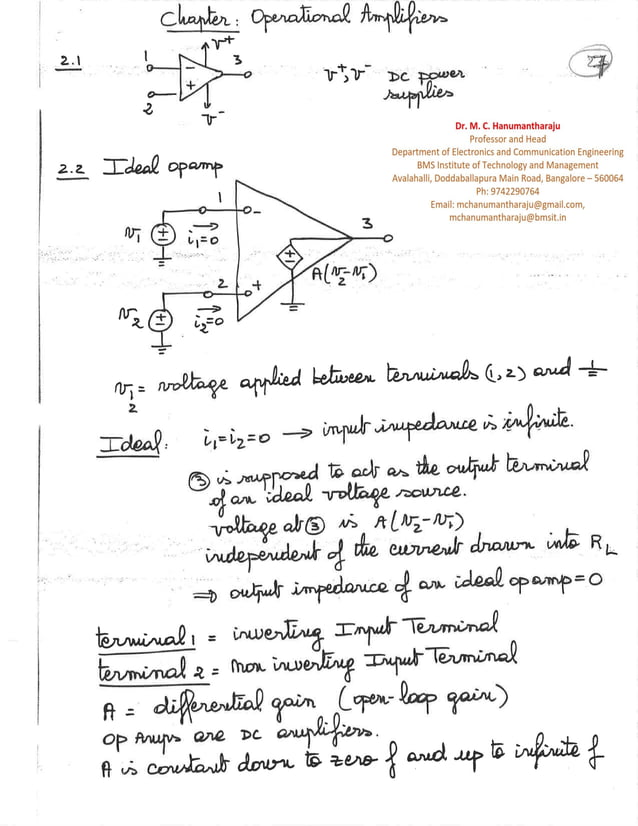 Chapter: Operational Amplifiers
2.1
1
V+
3
2
V-
-
+
V+, V- DC power
supplies
27
Dr. M. C. Hanumantharaju
Professor and Head
Department of Electronics and Communication Engineering
BMS Institute of Technology and Management
Avalahalli, Doddaballapura Main Road, Bangalore – 560064
Ph: 9742290764
Email: mchanumantharaju@gmail.com,
mchanumantharaju@bmsit.in
2.2 Ideal opamp
1
-
v1
i1=0
3
A(v2-v1)
2
+
v2
i2=0
v1 = voltage applied between terminals (1,2) and ⏚
2
Ideal: i1=i2=0 → input impedance is infinite.
③ is supposed to act as the output terminal
of an ideal voltage source.
voltage at ③ is A(v2-v1)
independent of the current drawn into RL
⇒ output impedance of an ideal opamp=0
terminal 1 = inverting Input Terminal
terminal 2 = non inverting Input Terminal
A = differential gain (open-loop gain)
Op Amps are DC amplifiers.
A is constant down to zero f and up to infinite f